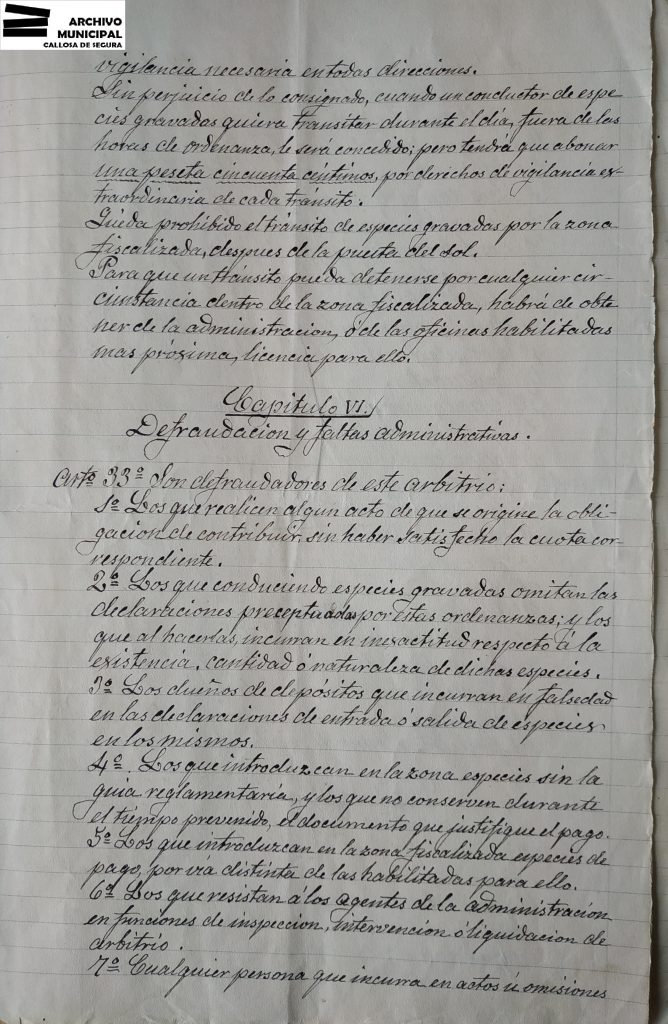 ARCHIVO
MUNICIPAL
CALLOSA DE SEGURA
vigilancia necesaria en todas direcciones.
Sin perjuicio de lo consignado, cuando un conductor de espe
cies gravadas quiera transitar durante el dia, fuera de las
horas de ordenanza, le será concedido; pero tendrá que abonar
una peseta cincuenta céntimos, por derechos de vigilancia ex-
traordinaria de cada tránsito.
Queda prohibido el tránsito de especies gravadas por la zona
fiscalizada, despues de la puesta del sol.
Para que un tránsito pueda detenerse por cualquier cir-
cunstancia dentro de la zona fiscalizada, habrá de obte
ner de la administracion, ó de las oficinas habilitadas
mas próxima, licencia para ello.
Capitulo VI.
Defraudacion y faltas administrativas.
Artº 33º Son defraudadores de este arbitrio:
1º Los que realicen algun acto de que se origine la obli-
gacion de contribuir, sin haber satisfecho la cuota cor-
respondiente.
2º Los que conduciendo especies gravadas omitan las
declaraciones preceptuadas por estas ordenanzas; y los
que al hacerlas, incurran en inexactitud respecto á la
existencia, cantidad ó naturaleza de dichas especies.
3º Los dueños de depósitos que incurran en falsedad
en las declaraciones de entrada ó salida de especies
en los mismos.
4º Los que introduzcan en la zona especies sin la
guia reglamentaria, y los que no conserven durante
el tiempo prevenido, el documento que justifique el pago.
5º Los que introduzcan en la zona fiscalizada especies de
pago, por via distinta de las habilitadas para ello.
6º Los que resistan á los agentes de la administracion
en funciones de inspeccion, intervencion ó liquidacion de
arbitrio.
7º Cualquier persona que incurra en actos ú omisiones